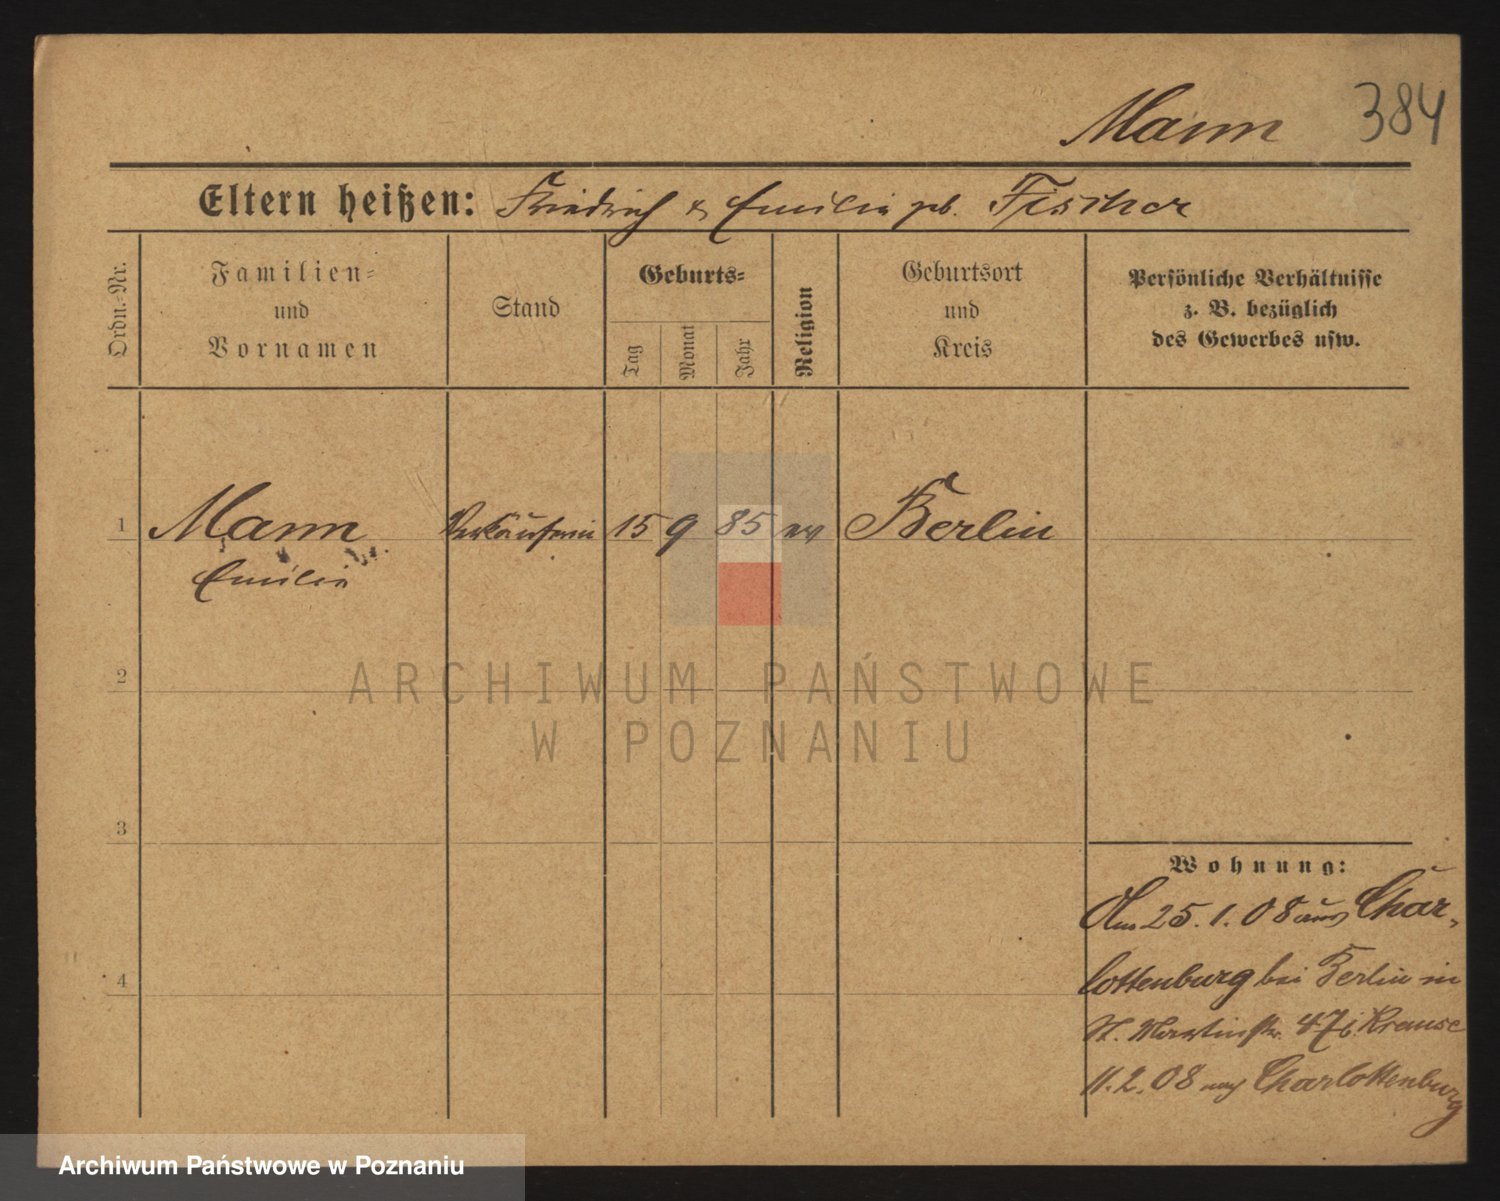 Mann 384
Eltern heißen: Friedrich & Emilie geb. Fischer
Ordn.-Nr.
Familien-
und
Vornamen
Stand
Geburts-
Tag
Monat
Jahr
Religion
Geburtsort
und
Kreis
Persönliche Verhältnisse
z. B. bezüglich
des Gewerbes usw.
1 Mann Verkäuferin 15 9 85 ev Berlin
Emilie
2
ARCHIWUM PAŃSTWOWE
W POZNANIU
3
Wohnung:
Am 25.1.08 aus Char-
lottenburg bei Berlin in
4
St. Martinstr. 47 b. Krause
11.2.08 nach Charlottenburg
Archiwum Państwowe w Poznaniu